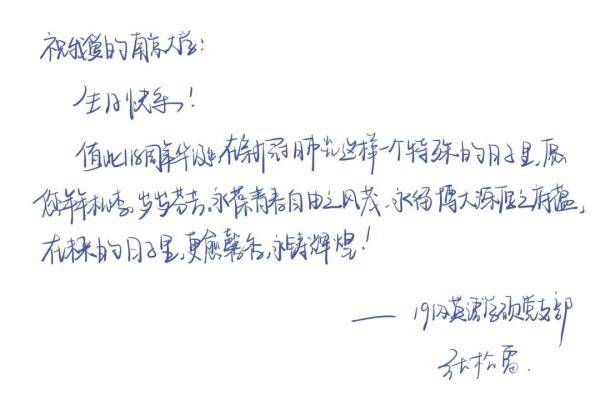 祝我爱的南京大学:
生日快乐!
值此118周年华诞,在新冠肺炎这样一个特殊的日子里,愿
您年年桃李,岁岁芬芳。永葆青春自由之风茂,永留博大深厚之底蕴,
在未来的日子里,更愈馨香,永铸辉煌!
——19级英语学硕党支部
张松雪.